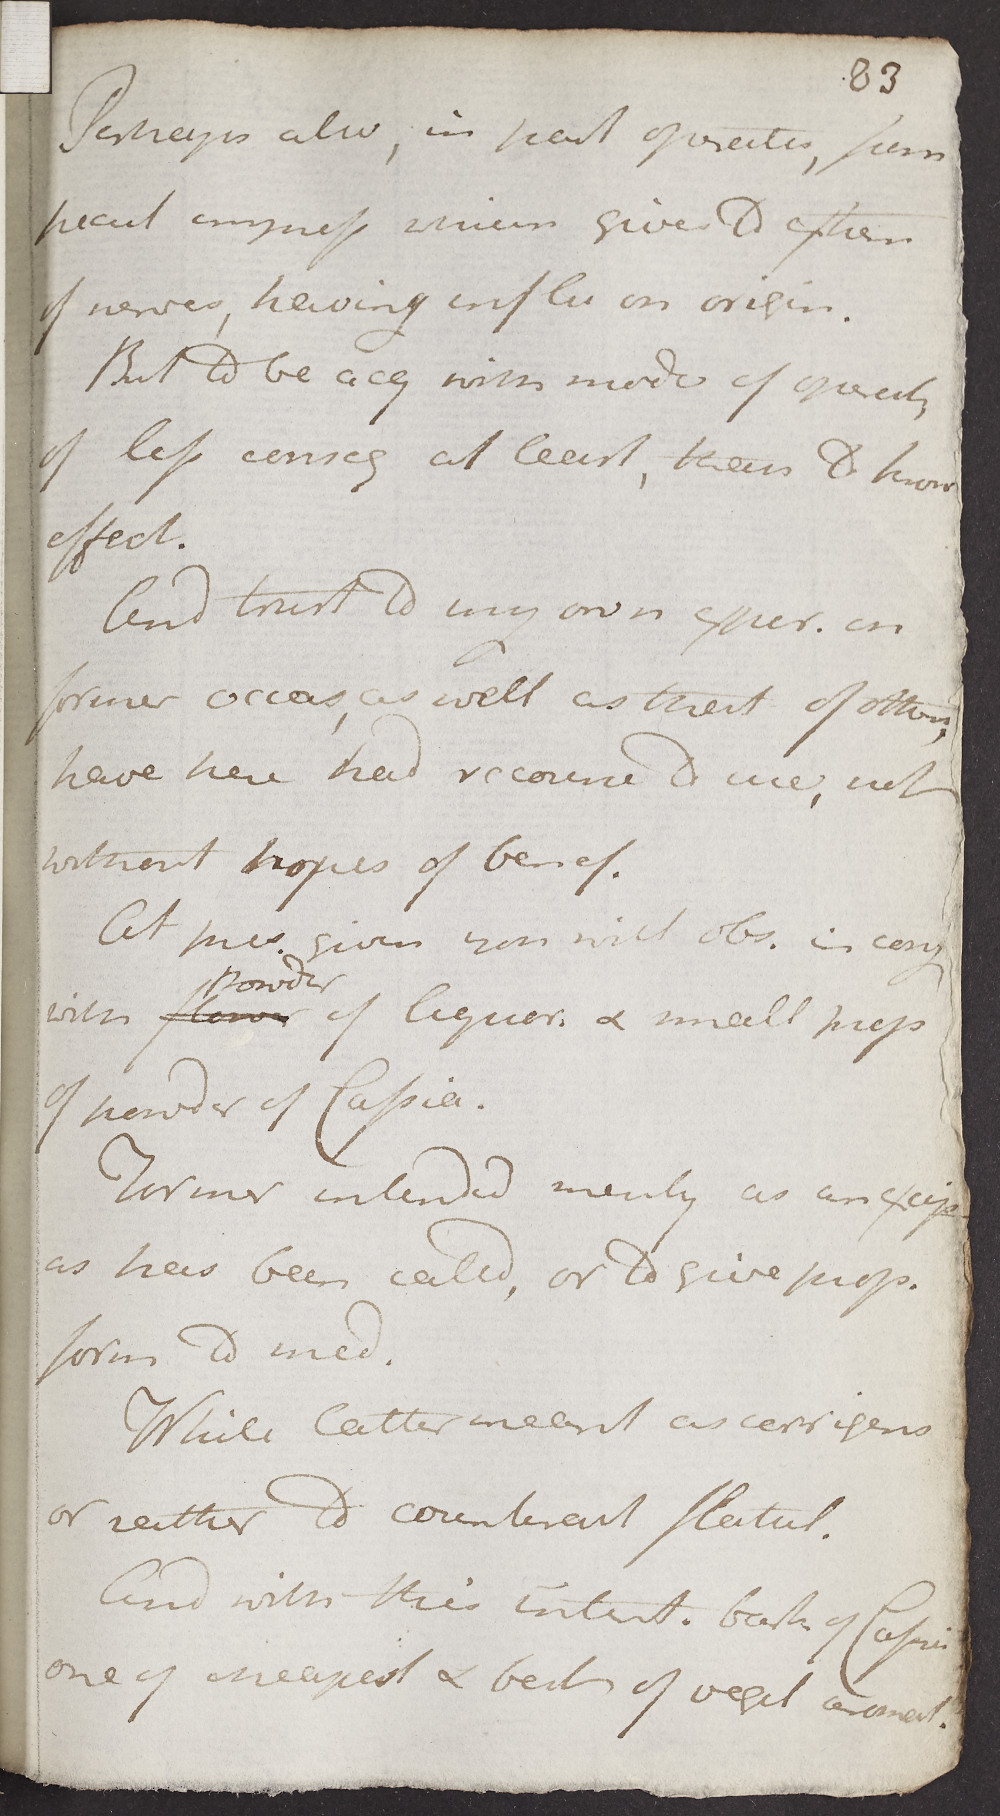 83
Perhaps also, in part operates, from
pecul impress which gives to extrem
of nerves, having influ on origin.
But to be acq with mode of operat,
of less conseq at least, than to know
effect.
And trust to my own exper. in
former occas, as well as that of others,
have here had recourse to use, not
without hopes of benef.
At pres. given you will obs. in conj
powder
with flower of liquor. & small prop
of powder of Cassia.
Former intended merely as an excip
as has been called, or to give prop.
form to med.
While latter meant as corrigens
or rather to counteract flatul.
And with this intent. bark of Cassia
one of cheapest & best of veget aromat.